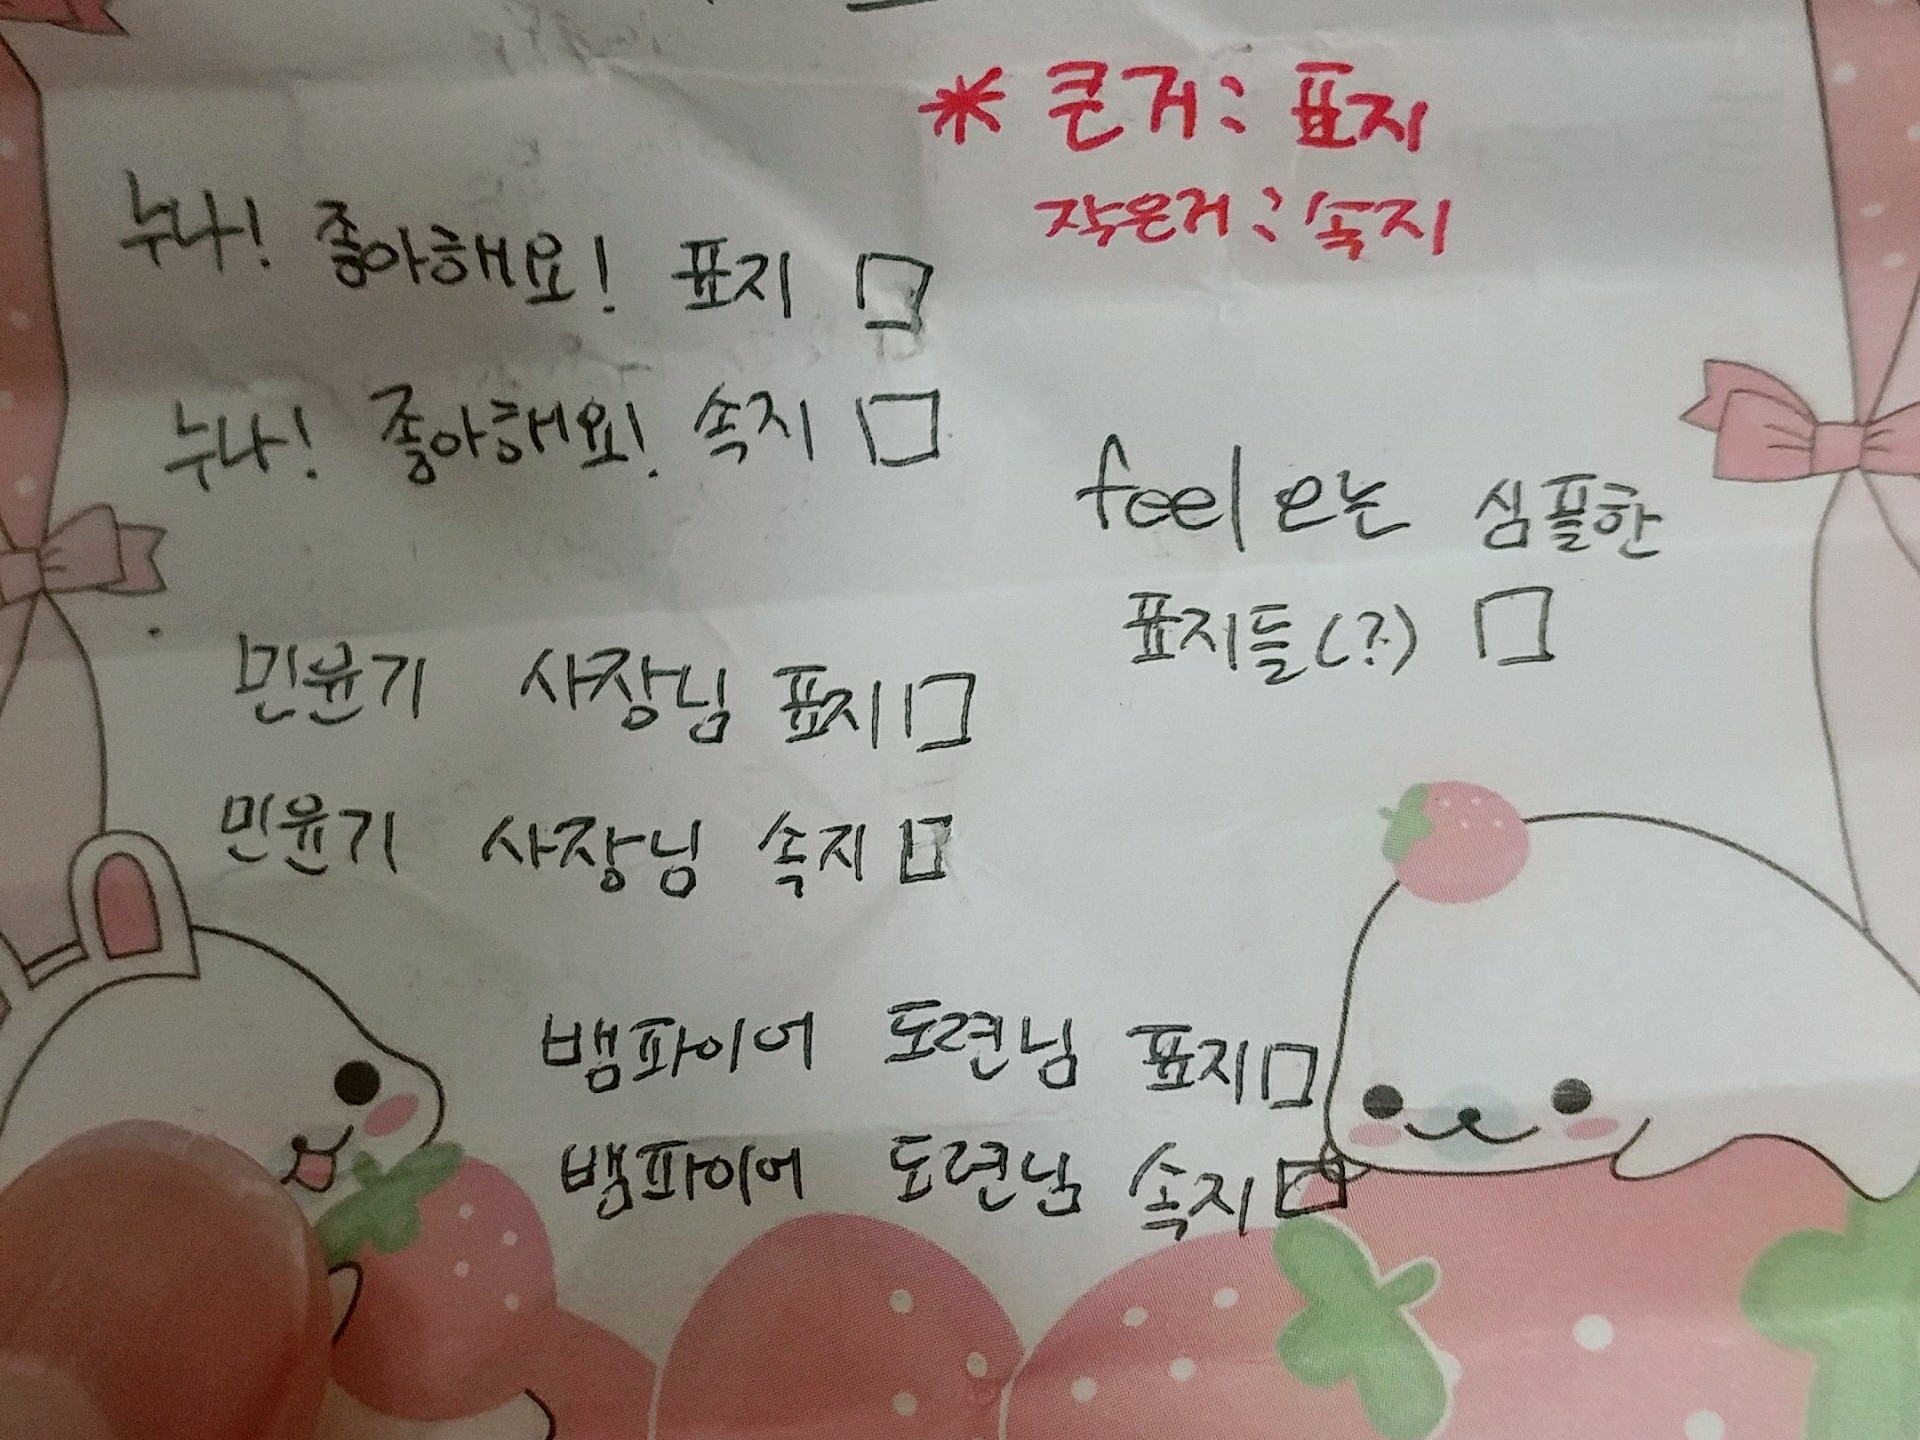 * 큰거: 표지
작은거: 속지
누나! 좋아해요! 표지 □
누나! 좋아해요! 속지 □
feel 오는 심플한
표지들(?) □
민윤기 사장님 표지 □
민윤기 사장님 속지 □
뱀파이어 도련님 표지 □
뱀파이어 도련님 속지 □